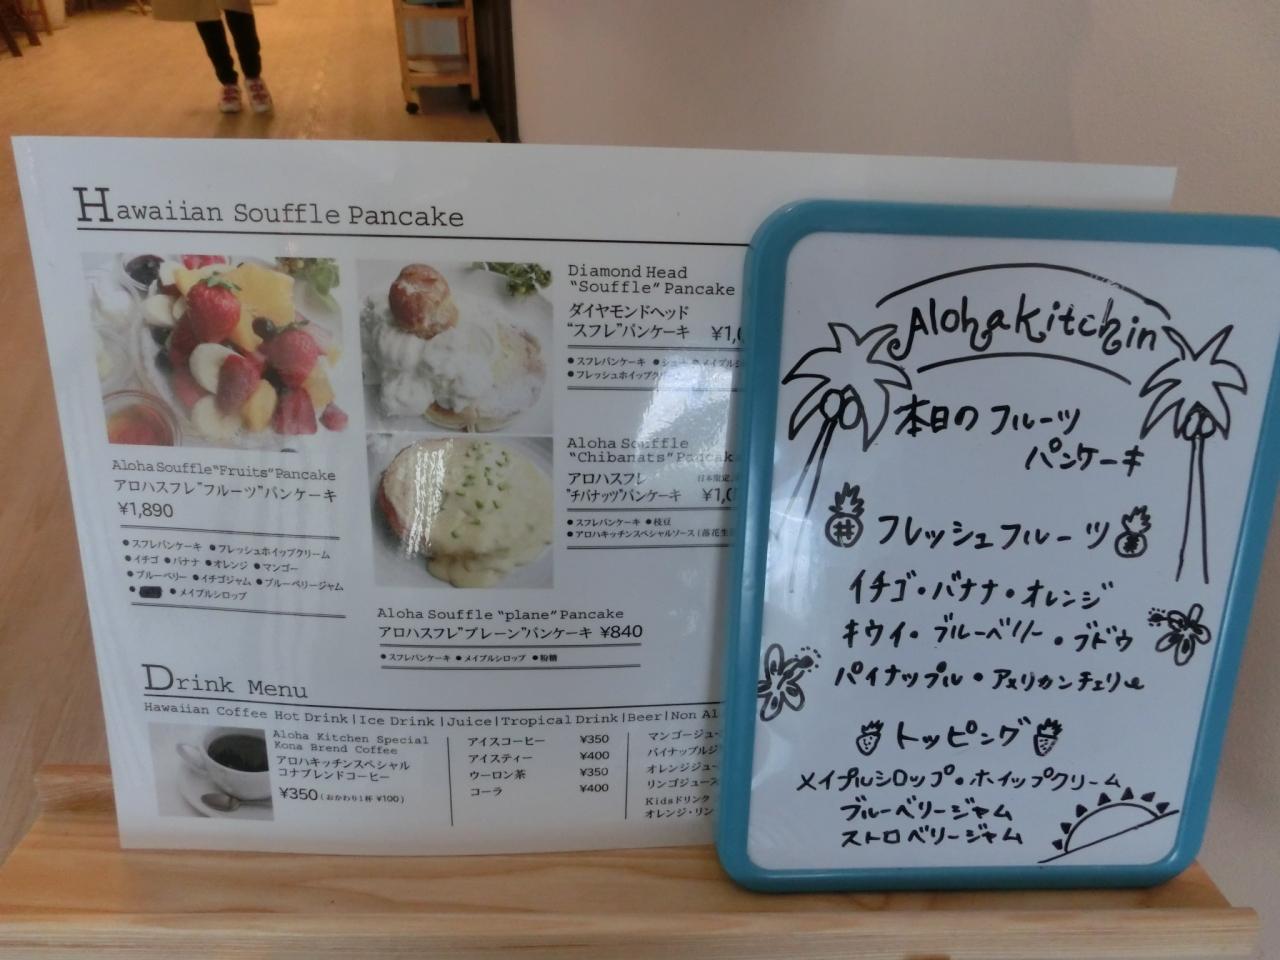 Hawaiian Souffle Pancake
Aloha Souffle"Fruits"Pancake
アロハスフレ"フルーツ"パンケーキ
¥1,890
●スフレパンケーキ ●フレッシュホイップクリーム
●イチゴ ●バナナ ●オレンジ ●マンゴー
●ブルーベリー ●イチゴジャム ●ブルーベリージャム
●メイプルシロップ
Diamond Head
"Souffle" Pancake
ダイヤモンドヘッド
"スフレ"パンケーキ
●スフレパンケーキ ●シュー ●メイプル
●フレッシュホイップ
Aloha Souffle
"Chibanats" Pancake
アロハスフレ 日本限定
"チバナッツ"パンケーキ
●スフレパンケーキ ●枝豆
●アロハキッチンスペシャルソース(落花生
Aloha Souffle "plane" Pancake
アロハスフレ"プレーン"パンケーキ ¥840
●スフレパンケーキ ●メイプルシロップ ●粉糖
Drink Menu
Hawaiian Coffee Hot Drink|Ice Drink|Juice|Tropical Drink|Beer|Non Al
Aloha Kitchen Special
Kona Brend Coffee
アロハキッチンスペシャル
コナブレンドコーヒー
¥350(おかわり1杯 ¥100)
アイスコーヒー ¥350
アイスティー ¥400
ウーロン茶 ¥350
コーラ ¥400
マンゴージュー
パイナップルジ
オレンジジュー
リンゴジュース
Kidsドリンク
オレンジ・リン
Alohakitchin
本日のフルーツ
パンケーキ
フレッシュフルーツ
イチゴ・バナナ・オレンジ
キウイ・ブルーベリー・ブドウ
パイナップル・アメリカンチェリー
トッピング
メイプルシロップ・ホイップクリーム
ブルーベリージャム
ストロベリージャム